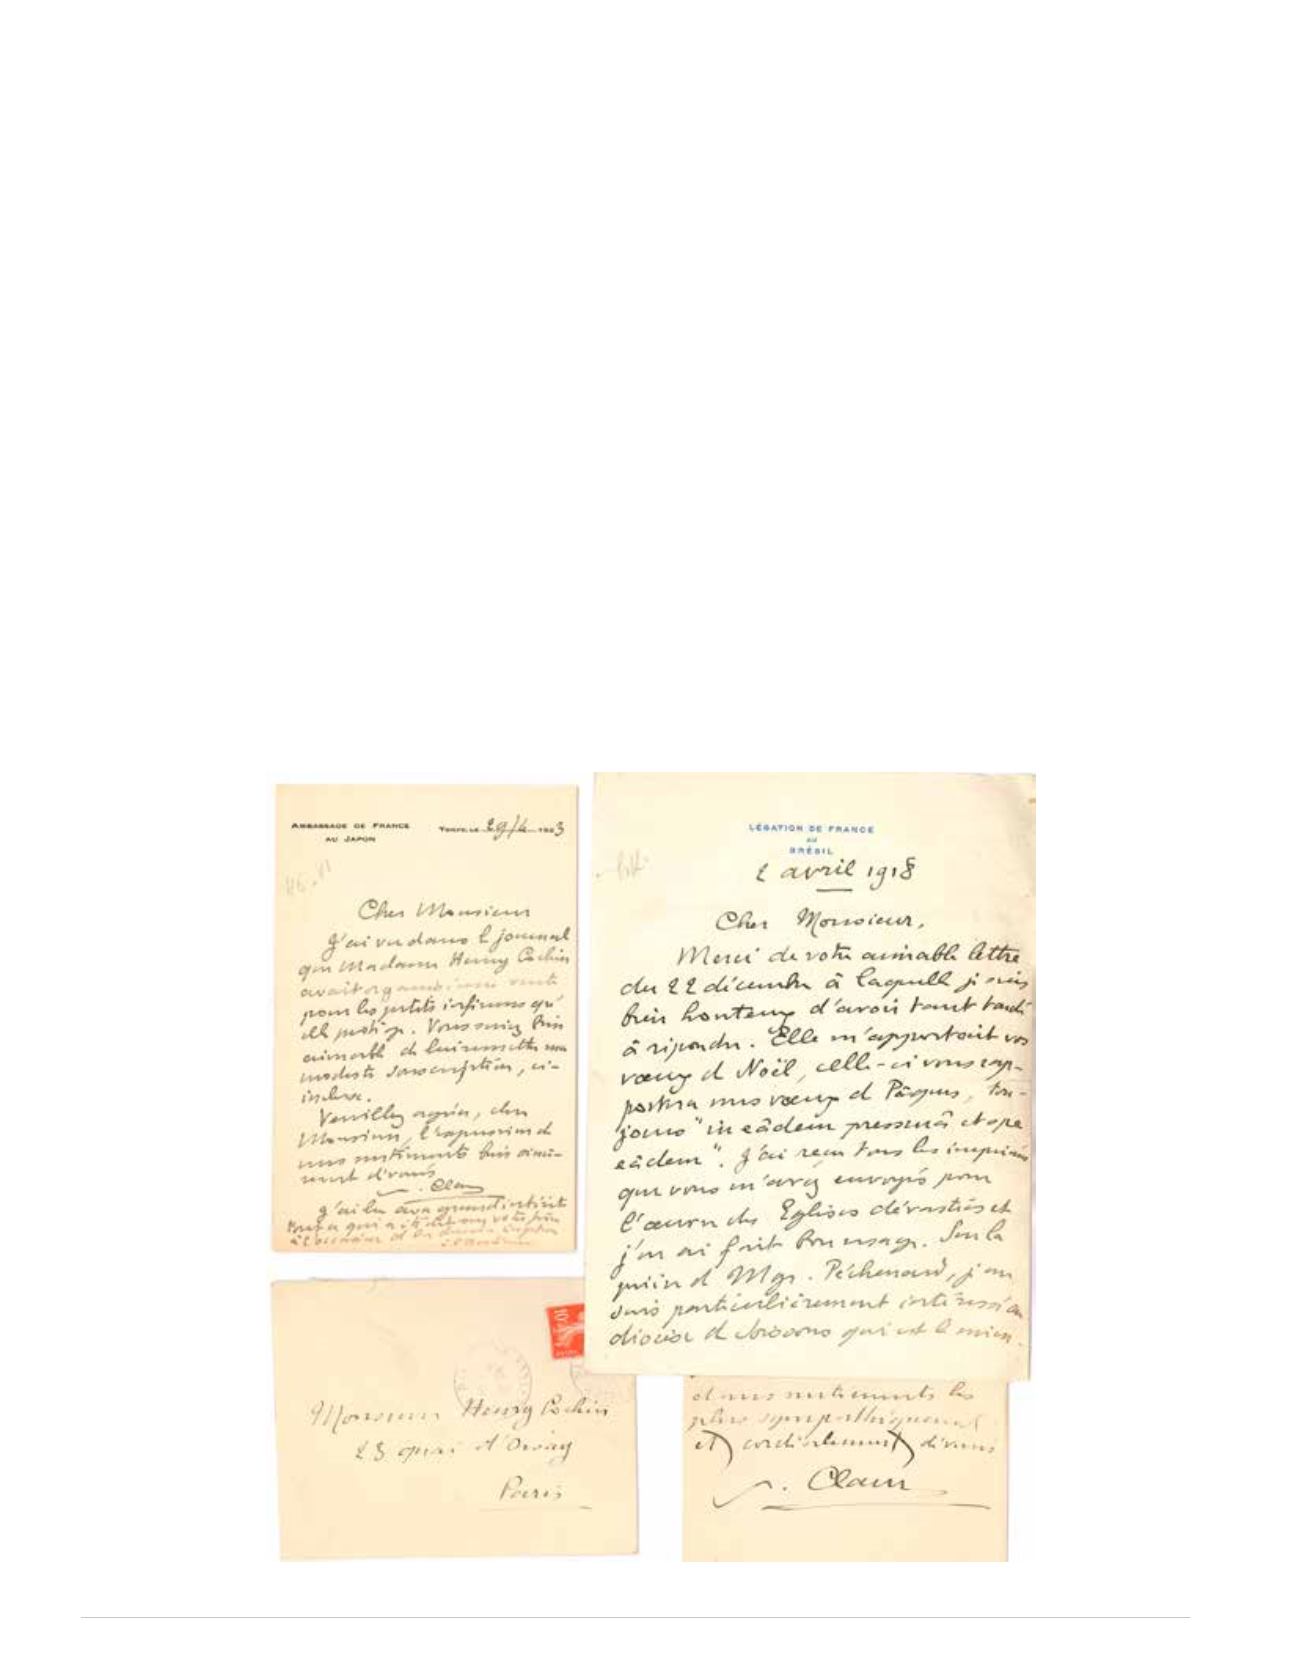 AMBASSADE DE FRANCE
AU JAPON
TOKYO, LE 29/4 1923
Cher Monsieur
J'ai vu dans le journal
que Madame Henry Cochin
avait organisé une vente
pour les petits infirmes qu'
elle protège. Vous seriez bien
aimable de lui remettre ma
modeste souscription, ci-
incluse.
Veuillez agréer, cher
Monsieur, l'expression de
mes sentiments bien sincè-
rement dévoués
P. Claudel
J'ai lu avec grand intérêt
tout ce qui a été dit sur votre frère
à l'occasion de
LÉGATION DE FRANCE
AU
BRÉSIL
2 avril 1918
Cher Monsieur,
Merci de votre aimable lettre
du 22 décembre à laquelle je suis
bien honteux d'avoir tant tardé
à répondre. Elle m'apportait vos
vœux de Noël, celle-ci vous rap-
portera mes vœux de Pâques, tou-
jours "in eâdem pressurâ et spe
eâdem". J'ai reçu tous les imprimés
que vous m'avez envoyés pour
l'œuvre des Eglises dévastées et
j'en ai fait bon usage. Sur la
prière de Mgr. Péchenard, je me
suis particulièrement intéressé au
diocèse de Soissons qui est le mien.
Monsieur Henry Cochin
23 quai d'Orsay
Paris
de mes sentiments les
plus sympathiquement
et cordialement dévoués
P. Claudel